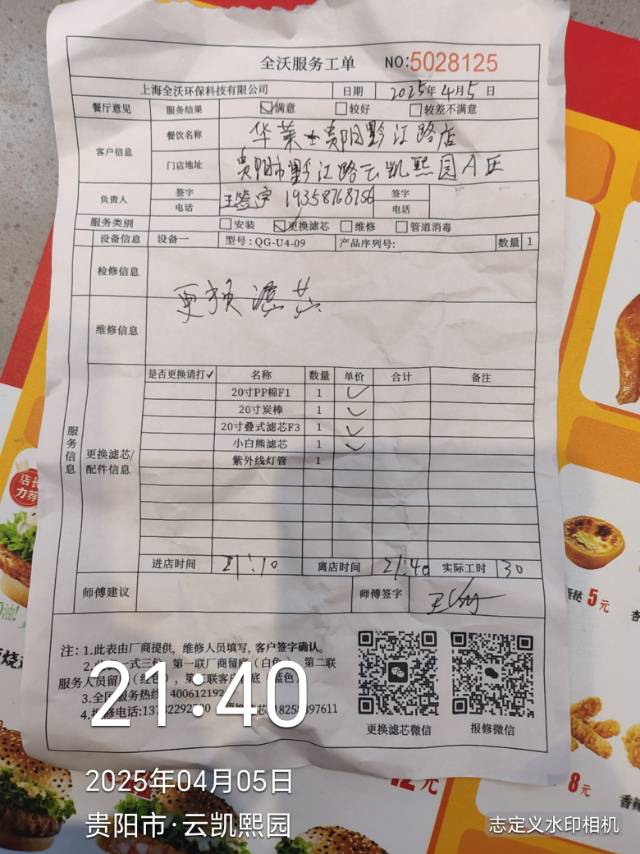 全沃服务工单 NO:5028125
上海全沃环保科技有限公司 日期 2025年4月5日
餐厅意见 服务结果 ☑满意 □较好 □较差不满意
客户信息 餐饮名称 华莱士贵阳黔江路店
门店地址 贵阳市黔江路云凯熙园A区
负责人 签字 签字
电话 19358768756 电话
服务类别 □安装 ☑更换滤芯 □维修 □管道消毒
设备信息 设备一 型号:QG-U4-09 产品序列号: 数量 1
检修信息
更换滤芯
维修信息
服务信息
更换滤芯/配件信息
是否更换请打✓ 名称 数量 单价 合计 备注
20寸PP棉F1 1 ✓
20寸炭棒 1 ✓
20寸叠式滤芯F3 1 ✓
小白熊滤芯 1 ✓
紫外线灯管 1
进店时间 21:10 离店时间 21:40 实际工时 30
师傅建议 师傅签字
注:1.此表由厂商提供,维修人员填写,客户签字确认。
一式三 第一联厂商留 (白色 第二联
服务人员留 联客
3.全国服务热线 400612192
4.报修电话:13 292 897611
更换滤芯微信 报修微信
21:40
2025年04月05日
贵阳市·云凯熙园
志定义水印相机
店长
力荐
5元
12元
8元
香辣